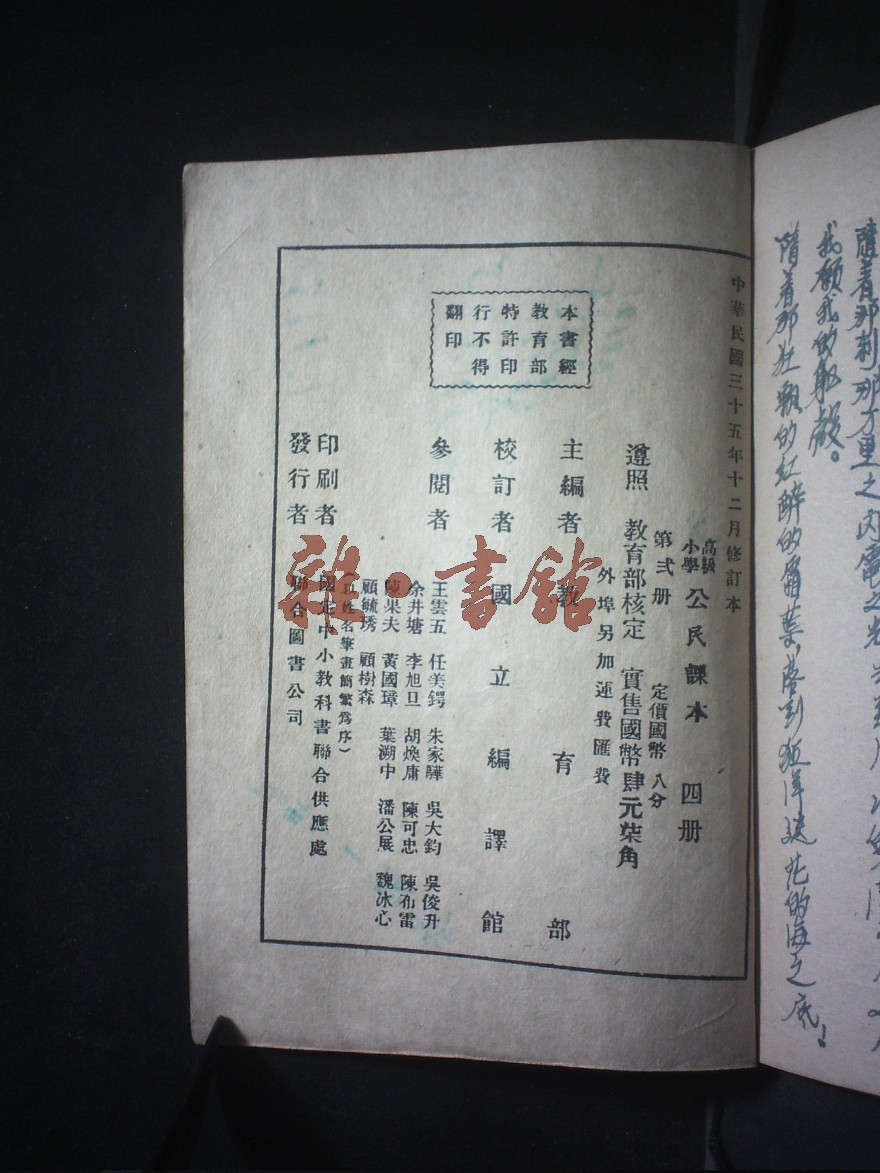 隨着那剎那万里之内電之光
我願我的軀殼。
隨着那狂飄的紅醉的霜葉,落到狂洋
的海之底!
中華民國三十五年十二月修訂本
高級小學 公民課本 四册
第弍册 定價國幣八分
遵照 教育部核定 實售國幣肆元柒角
外埠另加運費匯費
本書經
教育部
特許印
行不得
翻印
主編者 教育部
校訂者 國立編譯館
參閱者
王雲五 任美鍔 朱家驊 吳大鈞 吳俊升
余井塘 李旭旦 胡煥庸 陳可忠 陳布雷
陳果夫 黃國璋 葉溯中 潘公展 魏冰心
顧毓琇 顧樹森
(以姓名筆畫簡繁爲序)
印刷者 國定中小教科書聯合供應處
發行者 聯合圖書公司
雜·書館